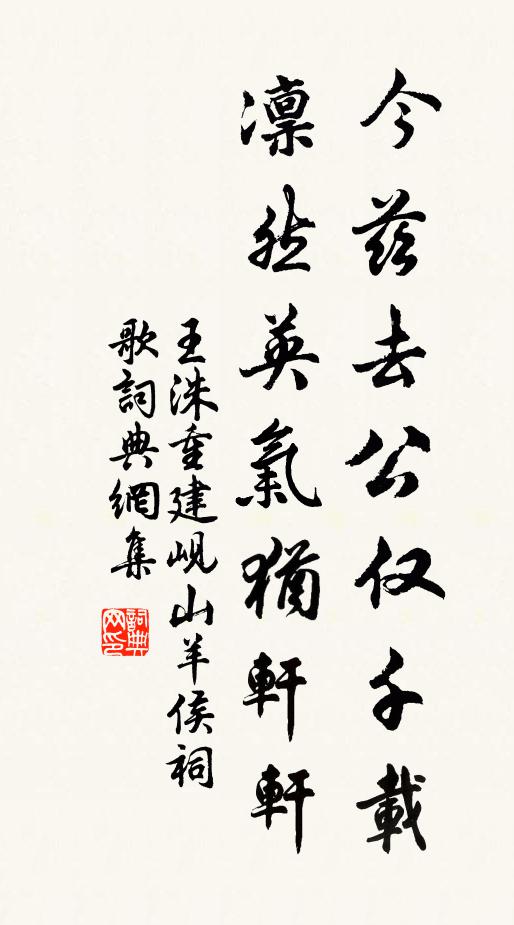 今茲去公仅千載
凛然英氣猶軒軒
王洙重建峴山羊侯祠
歌詞典網集
詞典
网印